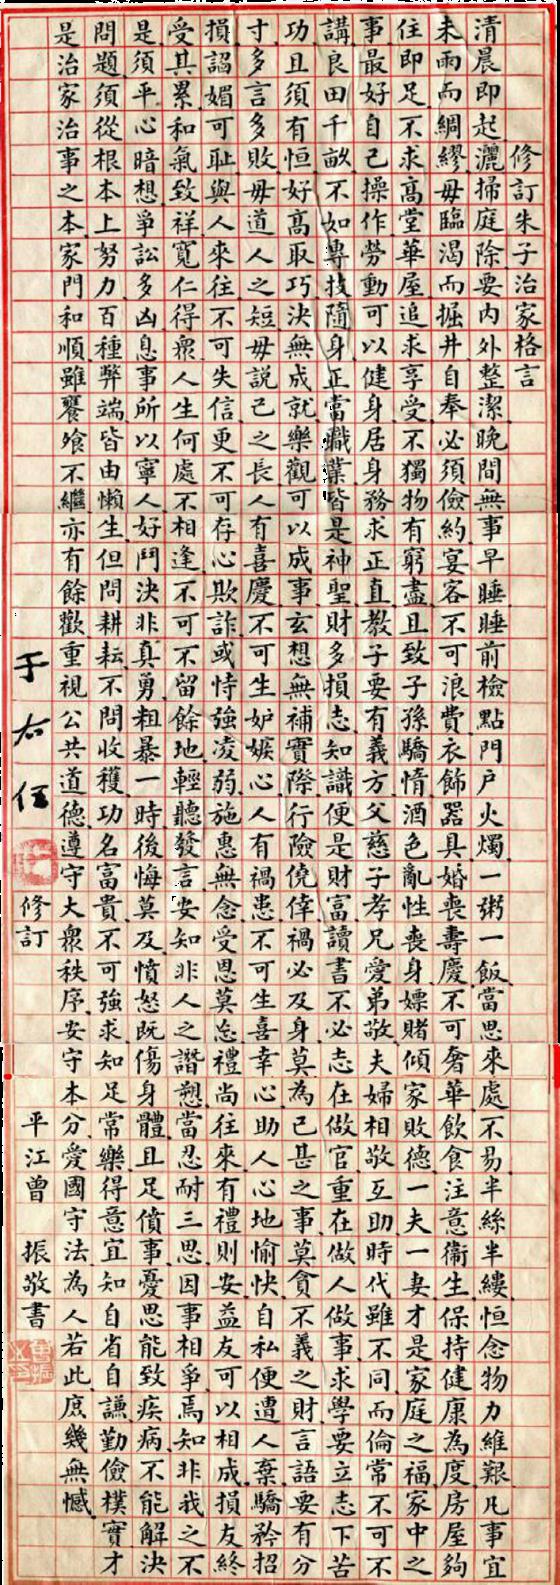 修訂朱子治家格言
清晨即起灑掃庭除要內外整潔晚間無事早睡睡前檢點門戶火燭一粥一飯當思來處不易半絲半縷恒念物力維艱凡事宜
未雨而綢繆毋臨渴而掘井自奉必須儉約宴客不可浪費衣飾器具婚喪壽慶不可奢華飲食注意衞生保持健康為度房屋夠
住即足不求高堂華屋追求享受不獨物有窮盡且致子孫驕惰酒色亂性喪身嫖賭傾家敗德一夫一妻才是家庭之福家中之
事最好自己操作勞動可以健身居身務求正直教子要有義方父慈子孝兄愛弟敬夫婦相敬互助時代雖不同而倫常不可不
講良田千畝不如專技隨身正當職業皆是神聖財多損志知識便是財富讀書不必志在做官重在做人做事求學要立志下苦
功且須有恒好高取巧決無成就樂觀可以成事玄想無補實際行險僥倖禍必及身莫為已甚之事莫貪不義之財言語要有分
寸多言多敗毋道人之短毋説己之長人有喜慶不可生妒嫉心人有禍患不可生喜幸心助人心地愉快自私便遭人棄驕矜招
損諂媚可耻與人來往不可失信更不可存心欺詐或恃強凌弱施惠無念受恩莫忘禮尚往來有禮則安益友可以相成損友終
受其累和氣致祥寬仁得衆人生何處不相逢不可不留餘地輕聽發言安知非人之譖愬當忍耐三思因事相爭焉知非我之不
是須平心暗想爭訟多凶息事所以寧人好鬥決非真勇粗暴一時後悔莫及憤怒既傷身體且足僨事憂思能致疾病不能解決
問題須從根本上努力百種弊端皆由懶生但問耕耘不問收穫功名富貴不可強求知足常樂得意宜知自省自謙勤儉樸實才
是治家治事之本家門和順雖饔飧不繼亦有餘歡重視公共道德遵守大衆秩序安守本分愛國守法為人若此庶幾無憾
于右任 修訂 平江曾 振敬書